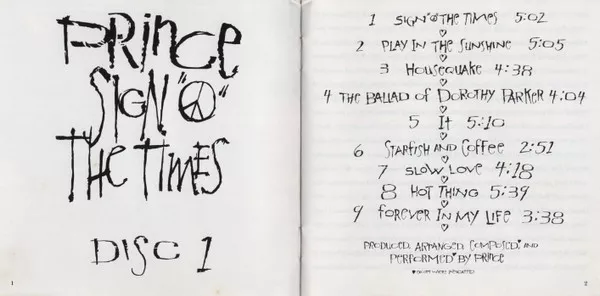 PRINCE
SIGN "☮"
THE TIMES
DISC 1
1
1 SIGN "☮" THE TIMES 5:02
2 PLAY IN THE SUNSHINE 5:05
3 HOUSEQUAKE 4:38
4 THE BALLAD OF DOROTHY PARKER 4:04
5 IT 5:10
6 STARFISH AND COFFEE 2:51
7 SLOW LOVE 4:18
8 HOT THING 5:39
9 FOREVER IN MY LIFE 3:38
PRODUCED, ARRANGED, COMPOSED, AND
PERFORMED BY PRINCE
♥EXCEPT WHERE INDICATED
2